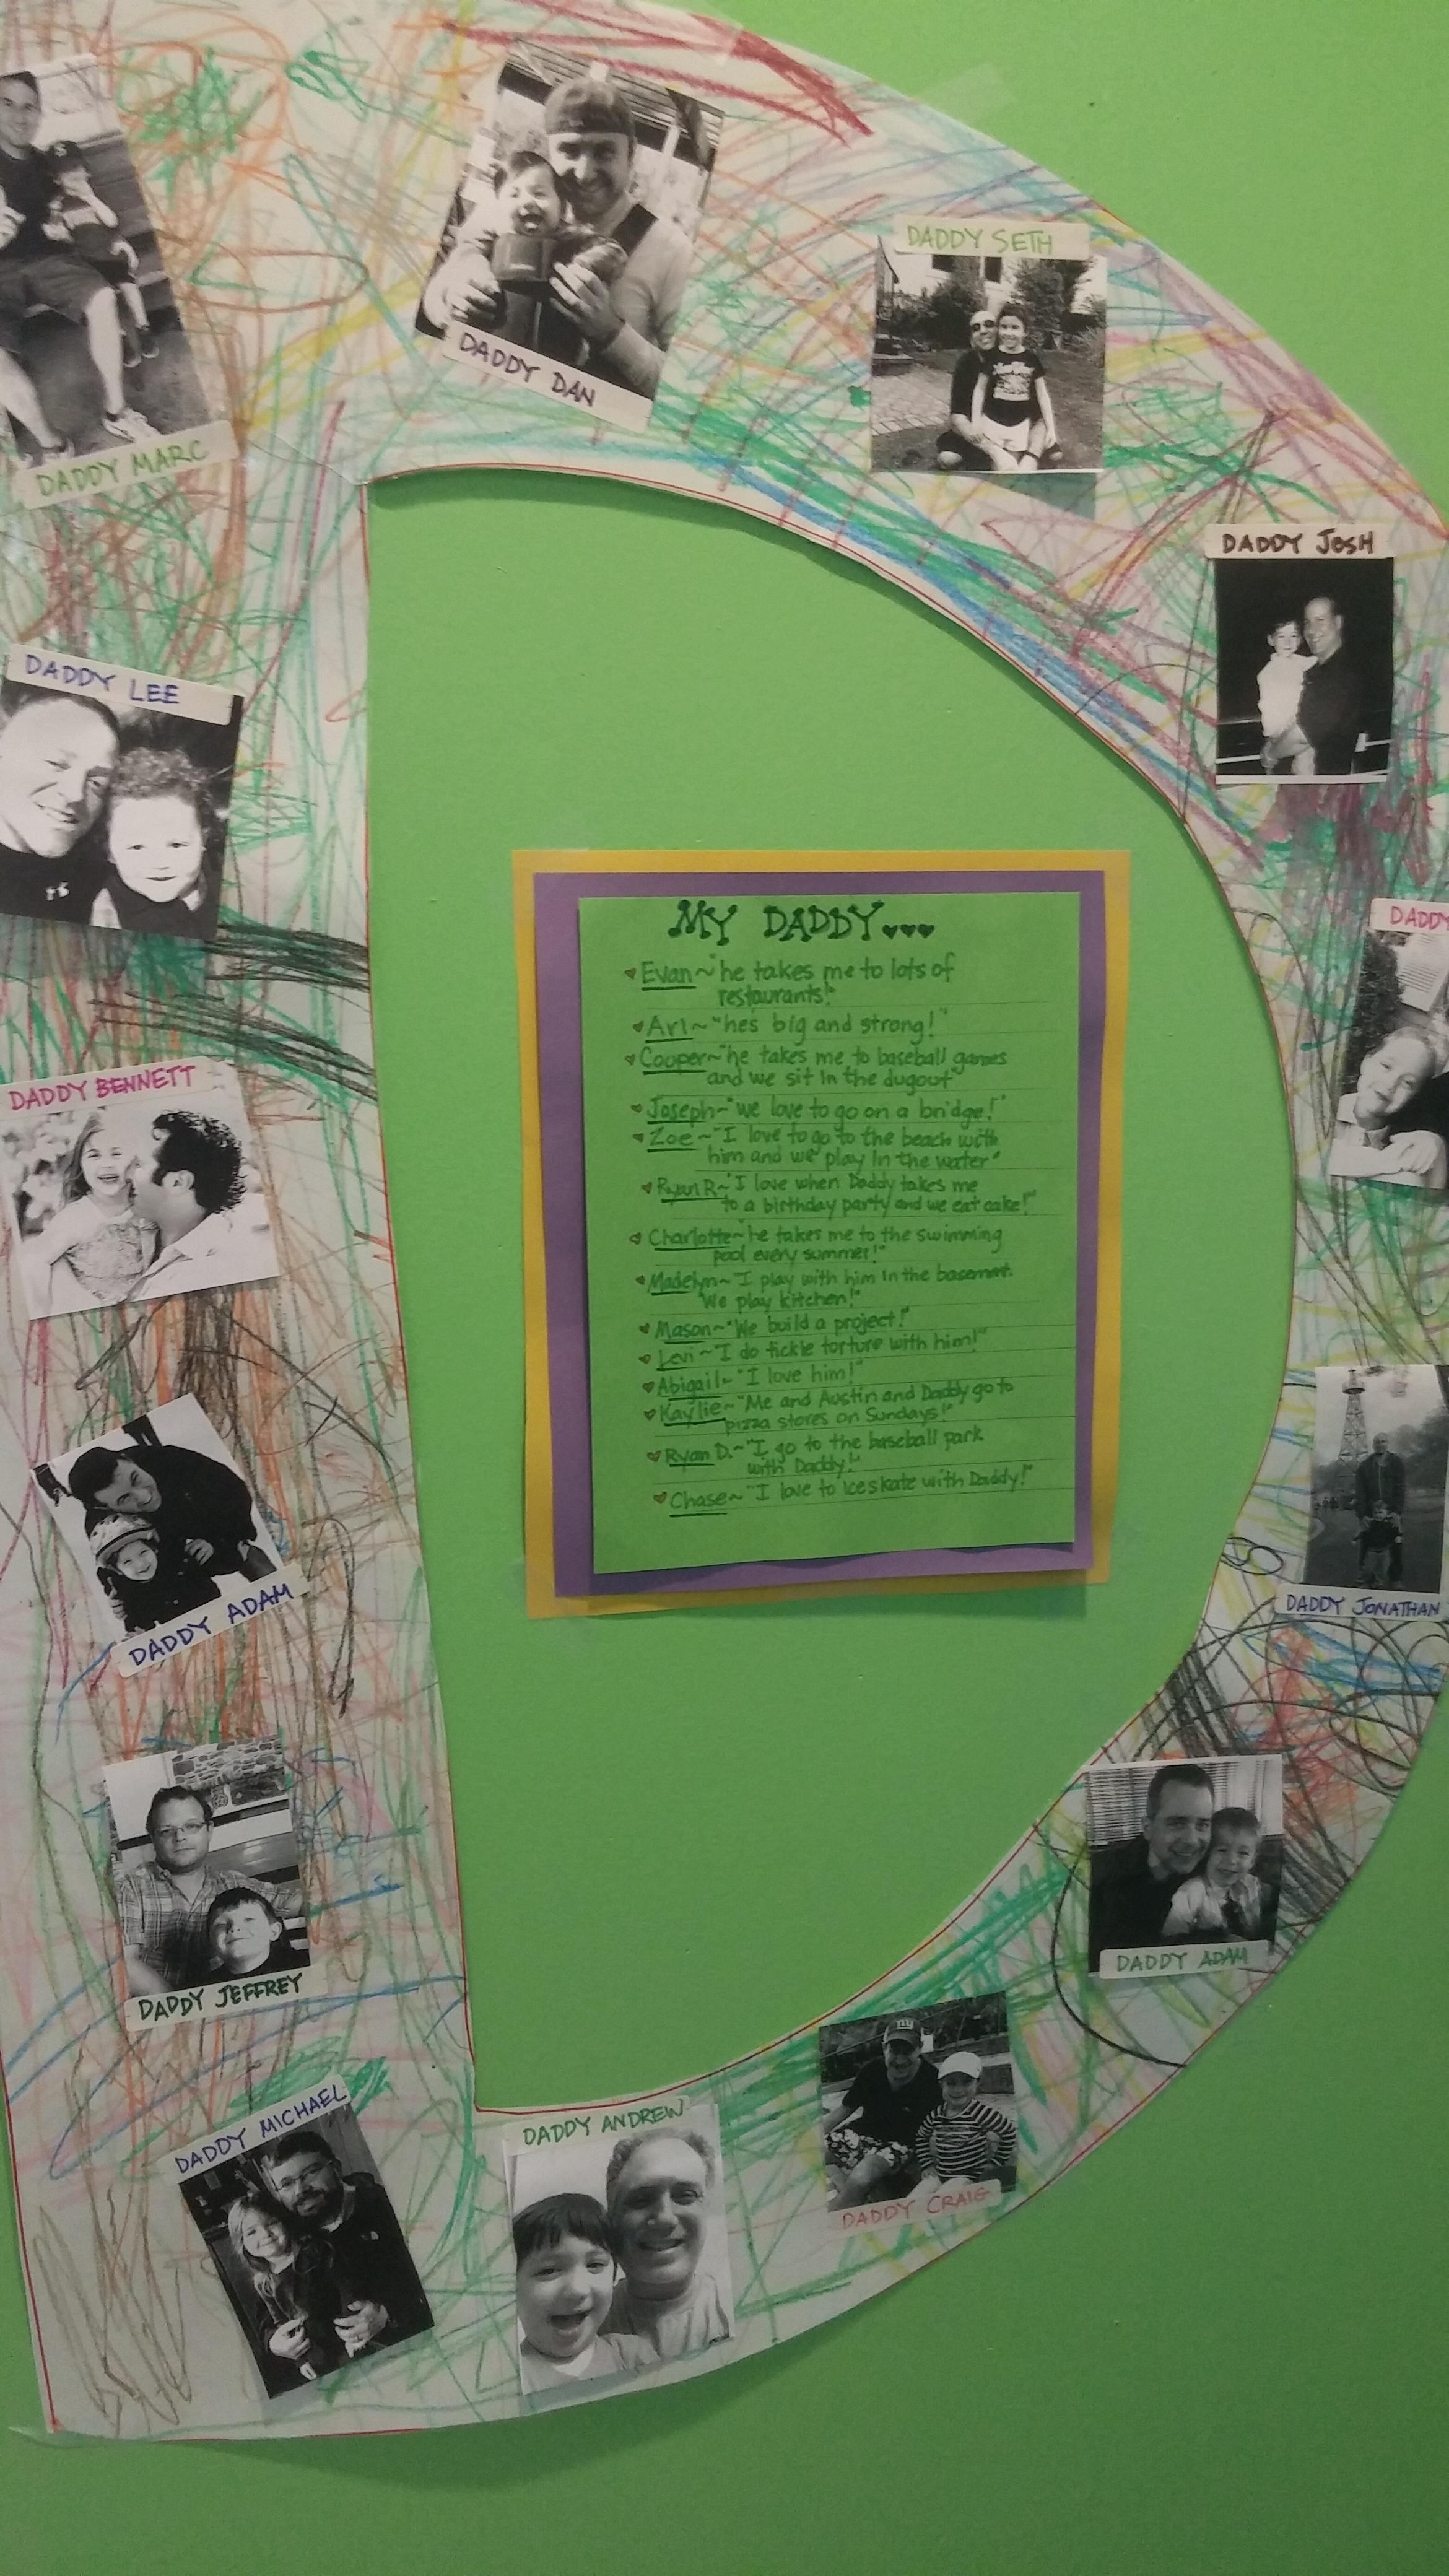 DADDY MARC
DADDY DAN
DADDY SETH
DADDY JOSH
DADDY LEE
DADDY
DADDY BENNETT
MY DADDY...
Evan~"he takes me to lots of
restaurants!"
Ari~"he's big and strong!"
Cooper~"he takes me to baseball games
and we sit in the dugout"
Joseph~"we love to go on a bridge!"
Zoe~"I love to go to the beach with
him and we play in the water"
Ryan R~"I love when Daddy takes me
to a birthday party and we eat cake!"
Charlotte~"he takes me to the swimming
pool every summer!"
Madelyn~"I play with him in the basement.
We play kitchen!"
Mason~"We build a project!"
Levi~"I do tickle torture with him!"
Abigail~"I love him!"
Kaylie~"Me and Austin and Daddy go to
pizza stores on Sundays!"
Ryan D.~"I go to the baseball park
with Daddy!"
Chase~"I love to iceskate with Daddy!"
DADDY JONATHAN
DADDY ADAM
DADDY ADAM
DADDY JEFFREY
DADDY MICHAEL
DADDY ANDREW
DADDY CRAIG